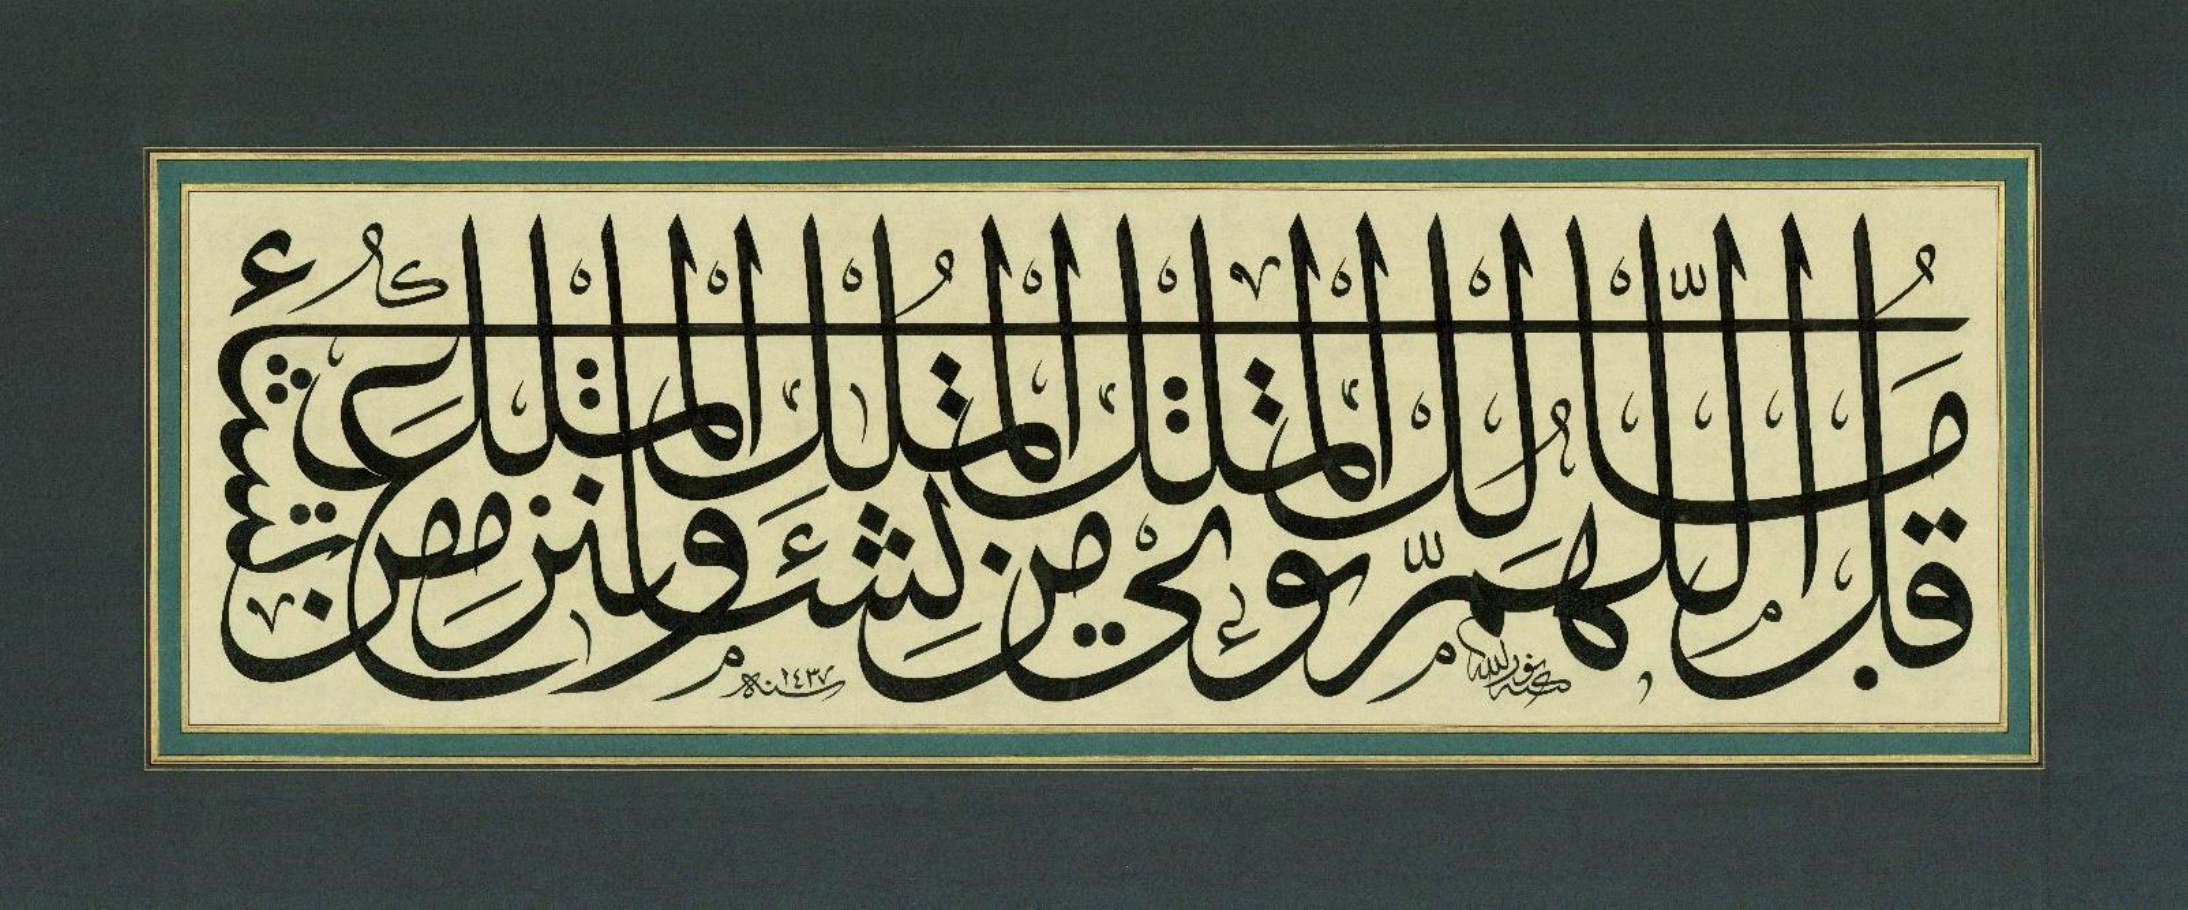 قُلِ اللّٰهُمَّ مَالِكَ الْمُلْكِ تُؤْتِي الْمُلْكَ مَنْ تَشَاءُ وَتَنْزِعُ الْمُلْكَ مِمَّنْ تَشَاءُ
سنة ١٤٣٧